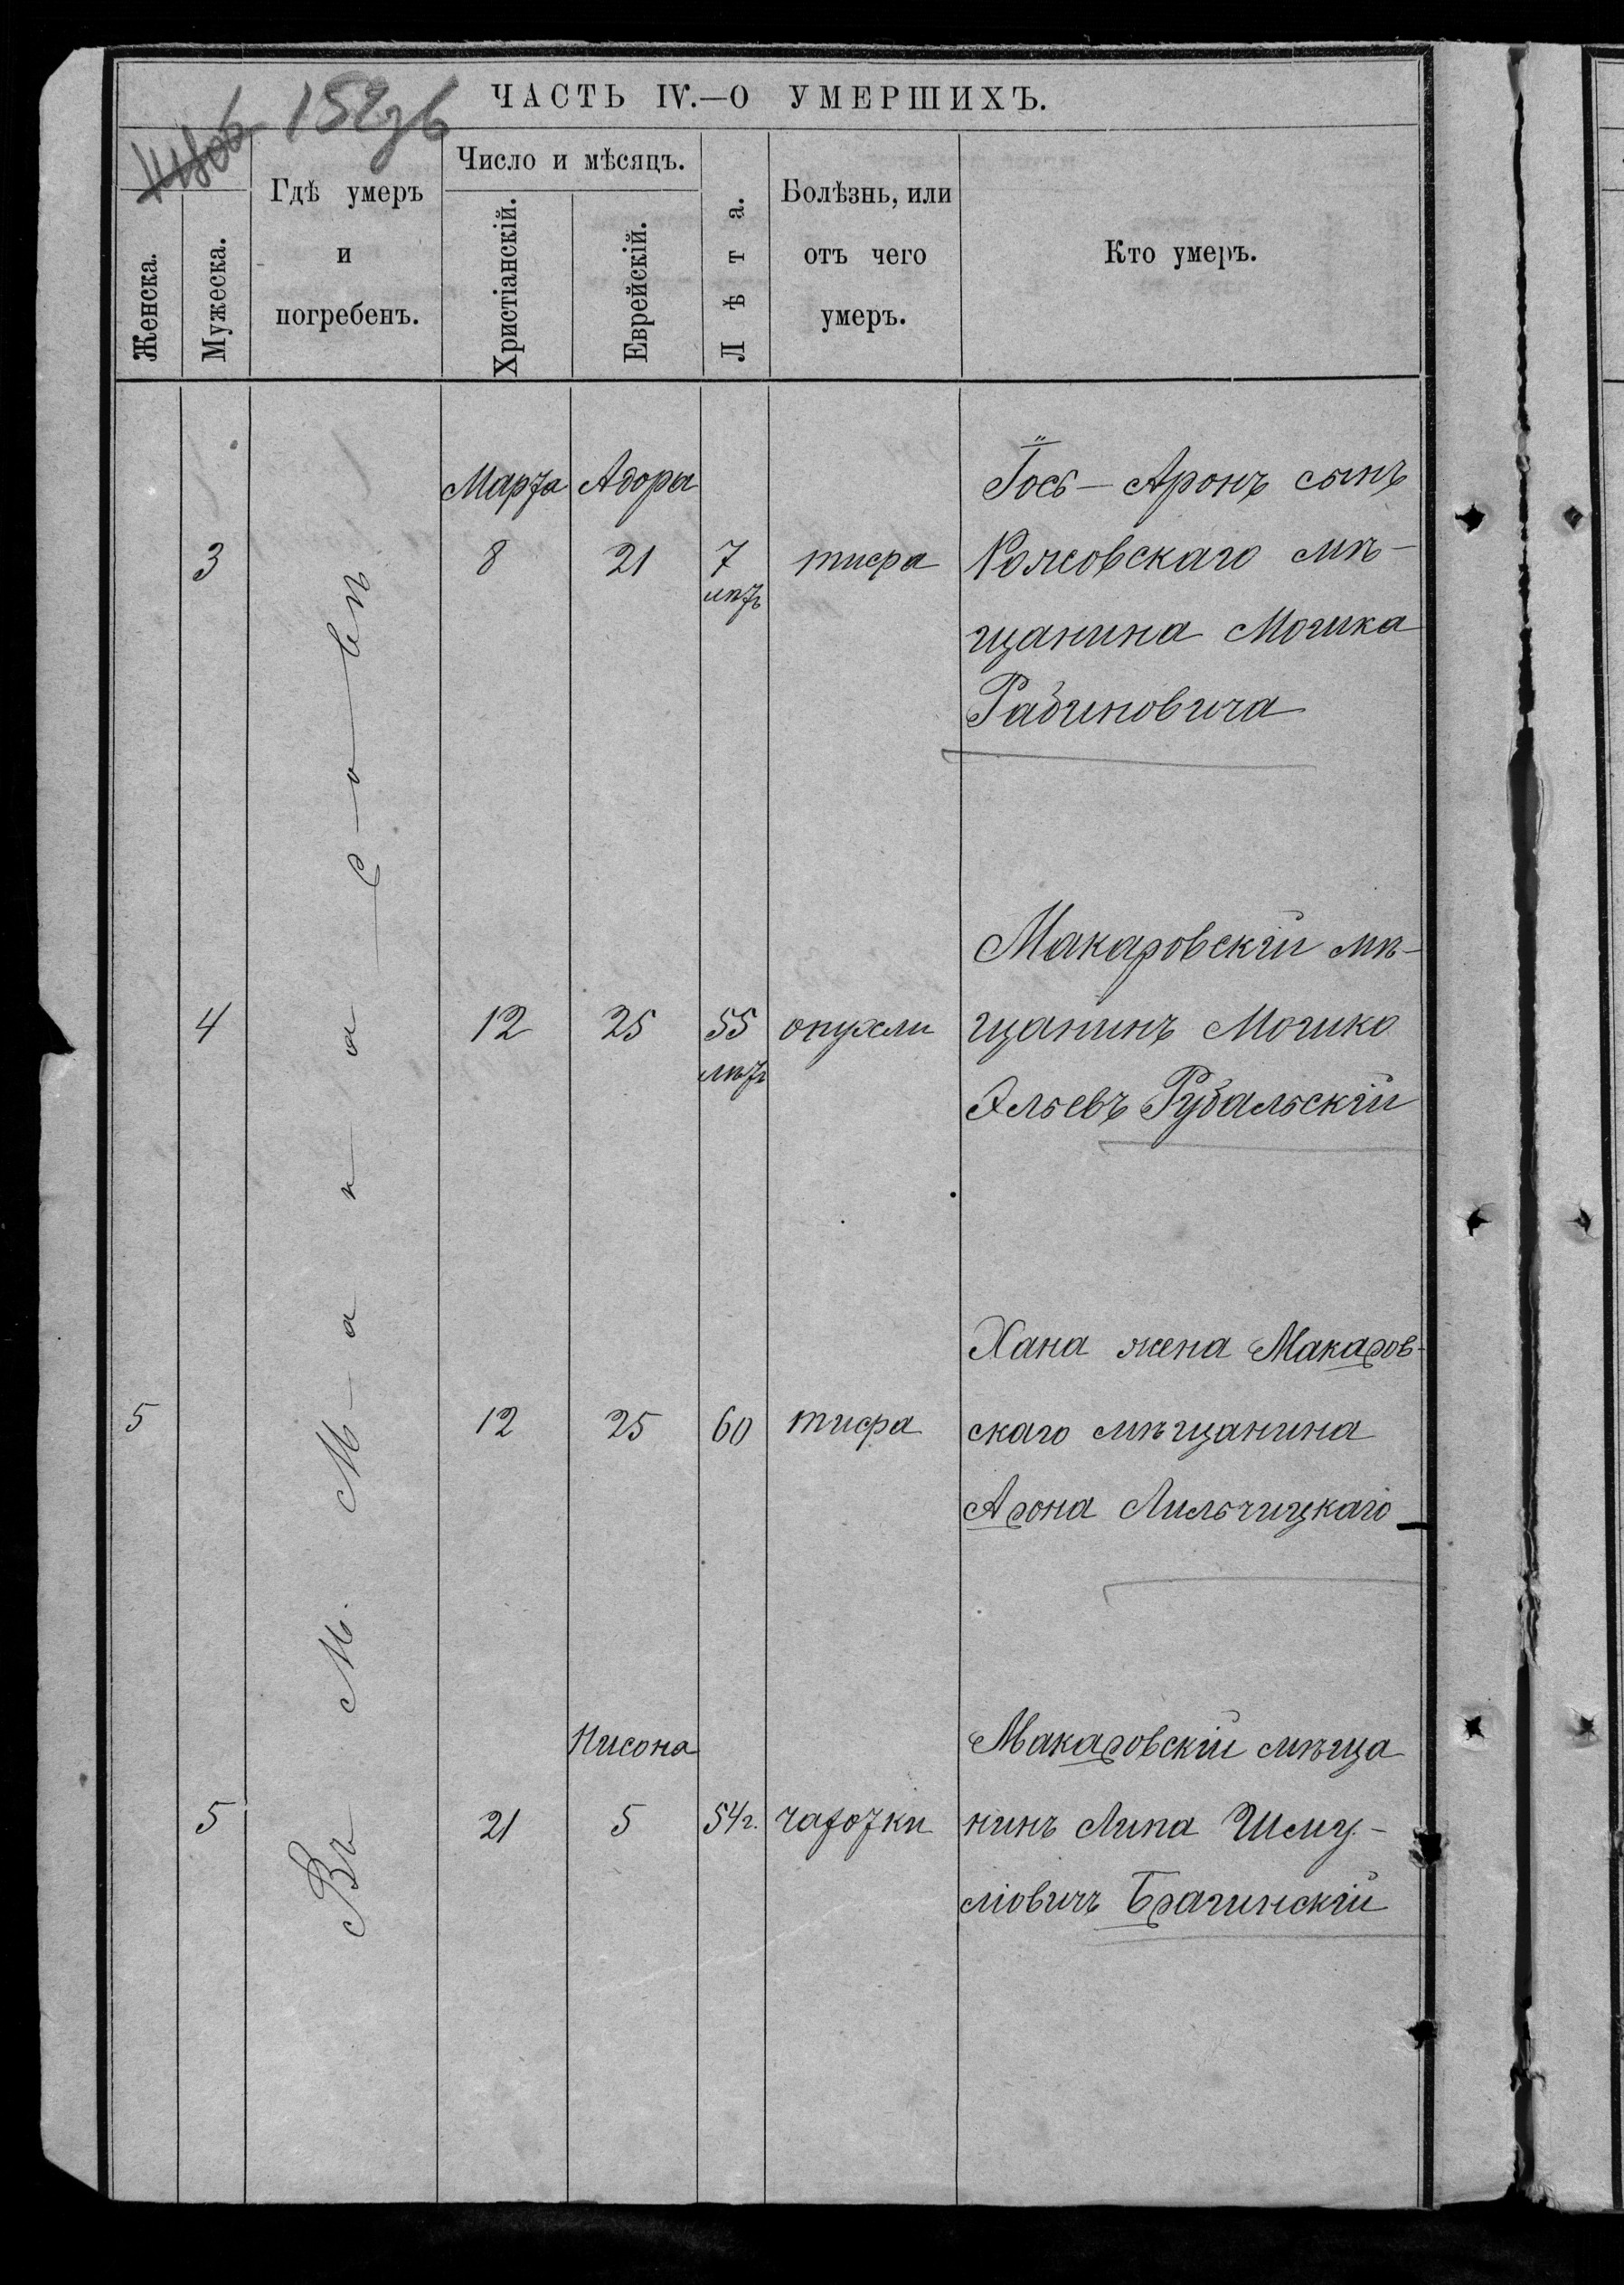 152
ЧАСТЬ IV.—О УМЕРШИХЪ.
Женска.
Мужеска.
Гдѣ умеръ
и
погребенъ.
Число и мѣсяцъ.
Христіанскій.
Еврейскій.
Лѣта.
Болѣзнь, или
отъ чего
умеръ.
Кто умеръ.
Въ м. Макаровѣ
Марта Адора
Іось-Аронъ сынъ
3 8 21 7 тифа мѣ-
лѣтъ
щанина Мошка
Рабиновича
Макаровскій мѣ-
4 12 25 55 опухоли щанинъ Мошко
лѣтъ
Эльевъ Рубальскій
Хана жена Макаров-
5 12 25 60 тифа скаго мѣщанина
Арона Лильчицкаго
Нисона Макаровскій мѣща
5 21 5 54 г. чахотки нинъ Липа Шму-
ліовичъ Брагинскій